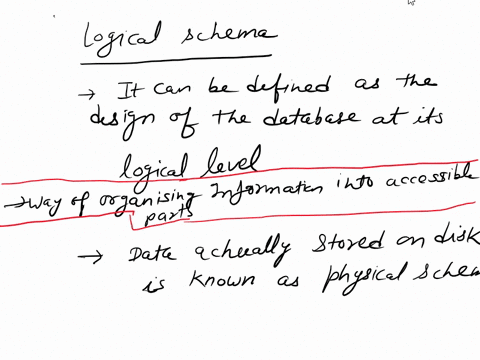 Logical schema
→ It can be defined as the
design of the database at its
logical level
→ way of organising Information into accessible
parts
→ Data actually stored on disk
is known as physical schem